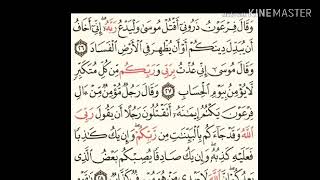 Made with KINEMASTER
وَقَالَ فِرْعَوْنُ ذَرُونِىٓ أَقْتُلْ مُوسَىٰ وَلْيَدْعُ رَبَّهُۥٓ إِنِّىٓ أَخَافُ
أَن يُبَدِّلَ دِينَكُمْ أَوْ أَن يُظْهِرَ فِى ٱلْأَرْضِ ٱلْفَسَادَ ٢٦
وَقَالَ مُوسَىٰٓ إِنِّى عُذْتُ بِرَبِّى وَرَبِّكُم مِّن كُلِّ مُتَكَبِّرٍ
لَّا يُؤْمِنُ بِيَوْمِ ٱلْحِسَابِ ٢٧ وَقَالَ رَجُلٌ مُّؤْمِنٌ مِّنْ ءَالِ
فِرْعَوْنَ يَكْتُمُ إِيمَٰنَهُۥٓ أَتَقْتُلُونَ رَجُلًا أَن يَقُولَ رَبِّىَ
ٱللَّهُ وَقَدْ جَآءَكُم بِٱلْبَيِّنَٰتِ مِن رَّبِّكُمْ وَإِن يَكُ كَٰذِبًا
فَعَلَيْهِ كَذِبُهُۥ وَإِن يَكُ صَادِقًا يُصِبْكُم بَعْضُ ٱلَّذِى
يَعِدُكُمْ إِنَّ ٱللَّهَ لَا يَهْدِى مَنْ هُوَ